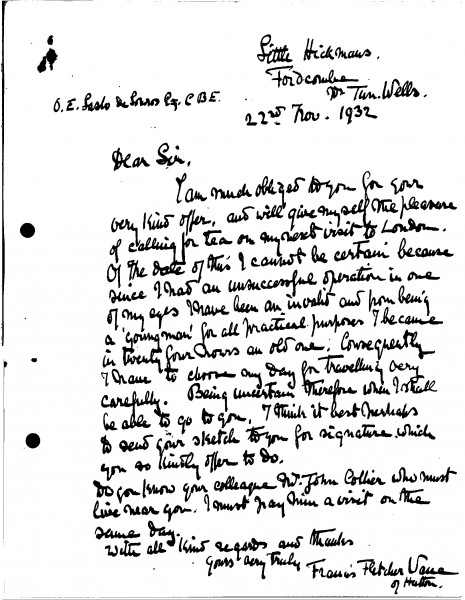 Little Hickmans.
Fordcombe
Nr Tun. Wells.
O. E. Laslo de Lombos Esq. C B E.
22nd Nov. 1932
Dear Sir,
I am much obliged to you for your
very kind offer, and will give myself the pleasure
of calling for tea on my next visit to London.
Of the date of this I cannot be certain because
since I had an unsuccessful operation in one
of my eyes I have been an invalid and from being
a 'young man' for all practical purposes I became
in twenty four hours an old one. Consequently
I have to choose my day for travelling very
carefully. Being uncertain therefore when I shall
be able to go to you, I think it best perhaps
to send your sketch to you for signature which
you so kindly offer to do.
Do you know your colleague Mr. John Collier who must
live near you. I must pay him a visit on the
same day.
With all kind regards and thanks
Yours very truly
Francis Fletcher Vane
of Hutton.